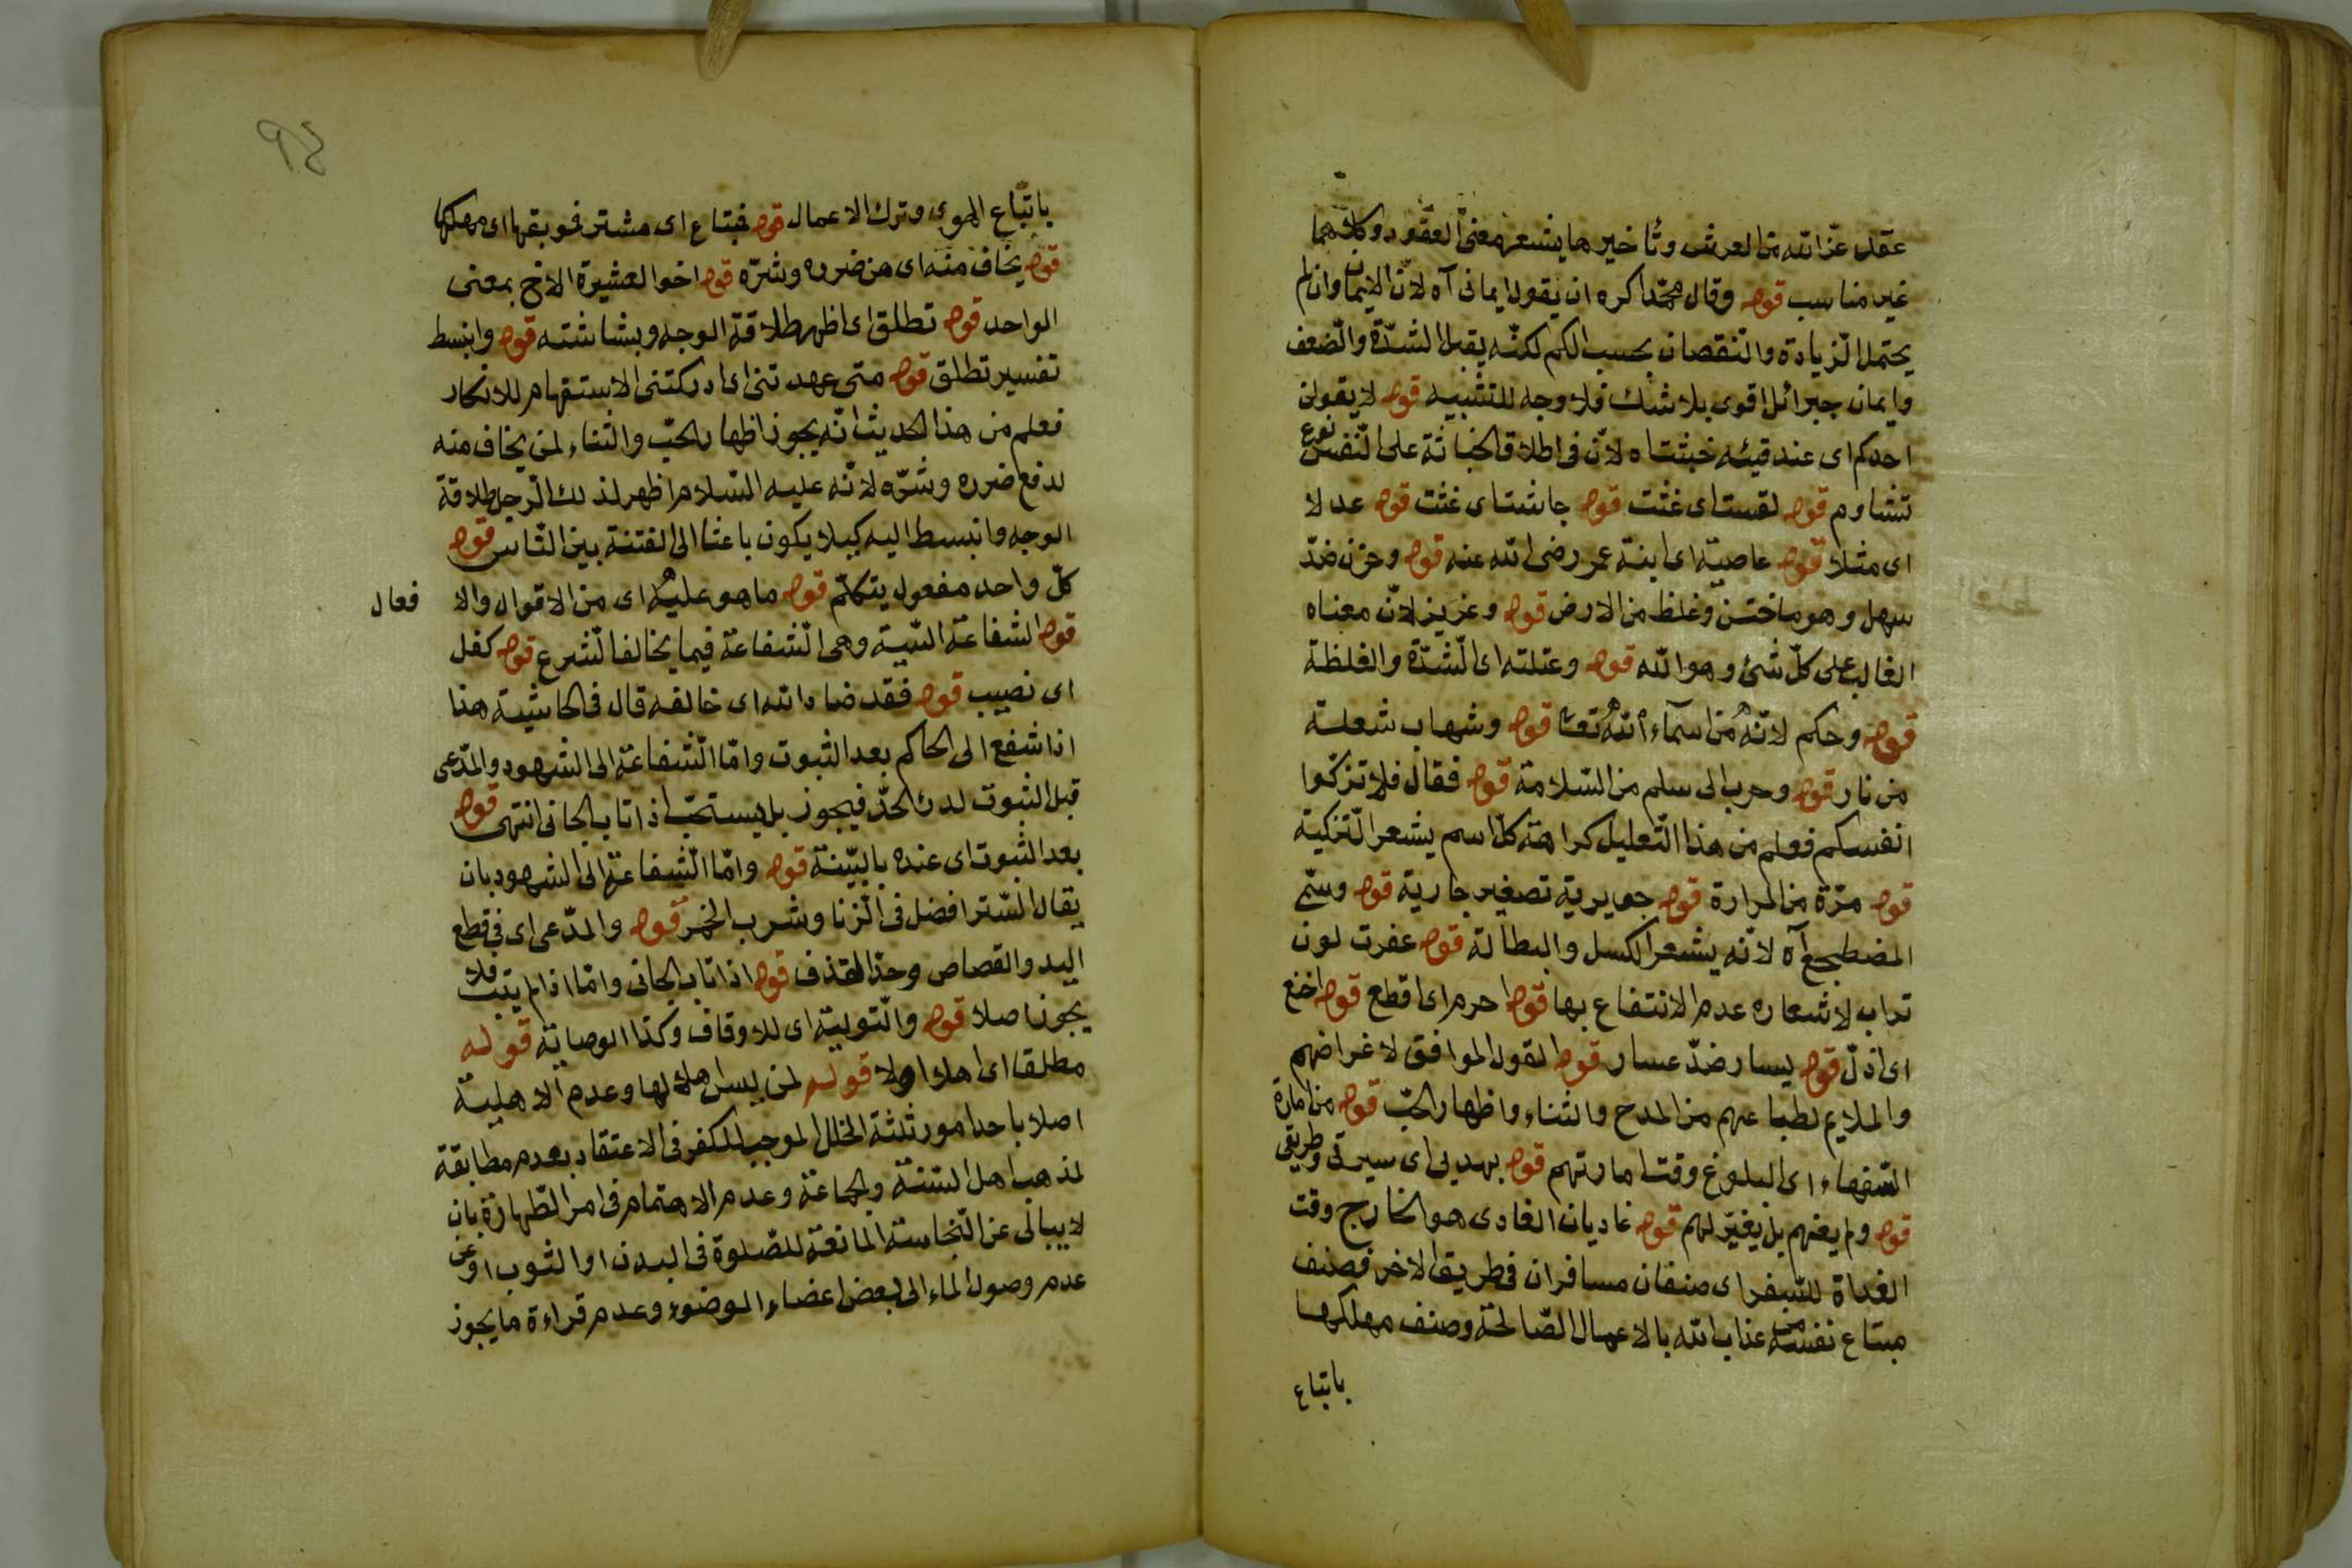 عقد عز الله من العرش وتأخيرها يشعر معنى العقود وكلاهما
غير مناسب قوله وقال محمد اكره ان يقول ايمانى آه لان الايمان وان لم
يحتمل الزيادة والنقصان بحسب الكم لكنه يقبل الشدة والضعف
وايمان جبرائل اقوى بلا شك فلا وجه للتشبيه قوله لا يقولن
احدكم اى عند قيئه خبثت اه لان فى اطلاق الخباثة على النفس نوع
تشاوم قوله لقست اى غثت قوله جاشت اى غثت قوله عدلا
اى مثلا قوله عاصية اى ابنة عمر رضى الله عنه قوله وحزن ضد
سهل وهو ما خشن وغلظ من الارض قوله وعزيز لان معناه
الغالب على كل شئ وهو الله قوله وعتلته اى الشدة والغلظة
قوله وحكم لانه من اسماء الله تعا قوله وشهاب شعلة
من نار قوله وحرب الى سلم من السلامة قوله فقال فلا تزكوا
انفسكم فعلم من هذا التعليل كراهة كل اسم يشعر التزكية
قوله مرّة من المرارة قوله جويرية تصغير جارية قوله وسمى
المضطجع آه لانه يشعر الكسل والبطالة قوله عفرت لون
تراب لاشعاره عدم الانتفاع بها قوله احرم اى اقطع قوله اخنع
اى اذل قوله يسار ضد عسار قوله القول الموافق لاغراضهم
والملايم لطباعهم من المدح والثناء واظهار الحب قوله من امارة
السفهاء اى البلوغ وقت امارتهم قوله بهديى اى سيرتى وطريقى
قوله ولم يعنهم بل يغير لهم قوله غاديان الغادى هو الخارج وقت
الغداة للسفر اى صنفان مسافران فى طريق الاخر فصنف
مبتاع نفسه من عذاب الله بالاعمال الصالحة وصنف مهلكها
باتباع
باتباع الهوى وترك الاعمال قوله فبتاع اى مشتر فوبقها اى مهلكها
قوله يخاف منه اى من ضرره وشره قوله اخو العشيرة الاخ بمعنى
الواحد قوله تطلق اى اظهر طلاقة الوجه وبشاشته قوله وانبسط
تفسير تطلق قوله متى عهدتنى اى ادركتنى الاستفهام للانكار
فعلم من هذا الحديث انه يجوز اظهار الحب والثناء لمن يخاف منه
لدفع ضرره وشره لانه عليه السلام اظهر لذلك الرجل طلاقة
الوجه وانبسط اليه كيلا يكون باعثا الى الفتنة بين الناس قوله
كل واحد مفعول يتكلم قوله ما هو عليه اى من الاقوال والا فعال
قوله الشفاعة السيئة وهى الشفاعة فيما يخالف الشرع قوله كفل
اى نصيب قوله فقد ضاد الله اى خالفه قال فى الحاشية هذا
اذا شفع الى الحاكم بعد الثبوت واما الشفاعة الى الشهود والمدعى
قبل الثبوت لدرء الحد فيجوز بل يستحب اذا تاب الجانى انتهى قوله
بعد الثبوت اى عنده بالبينة قوله واما الشفاعة الى الشهود بان
يقال الستر افضل فى الزنا وشرب الخمر قوله والمدعى اى فى قطع
اليد والقصاص وحد القذف قوله اذا تاب الجانى واما اذا لم يتب فلا
يجوز اصلا قوله والتولية اى للاوقاف وكذا الوصاية قوله
مطلقا اى اهلا اولا قوله لمن ليس اهلا لها وعدم الاهلية
اصلا باحد امور ثلثة الخلل الموجب للكفر فى الاعتقاد بعدم مطابقة
لمذهب اهل السنة والجماعة وعدم الاهتمام فى امر الطهارة بان
لا يبالى عن النجاسة المانعة للصلوة فى البدن او الثوب او عن
عدم وصول الماء الى بعض اعضاء الوضوء وعدم قراءة ما يجوز